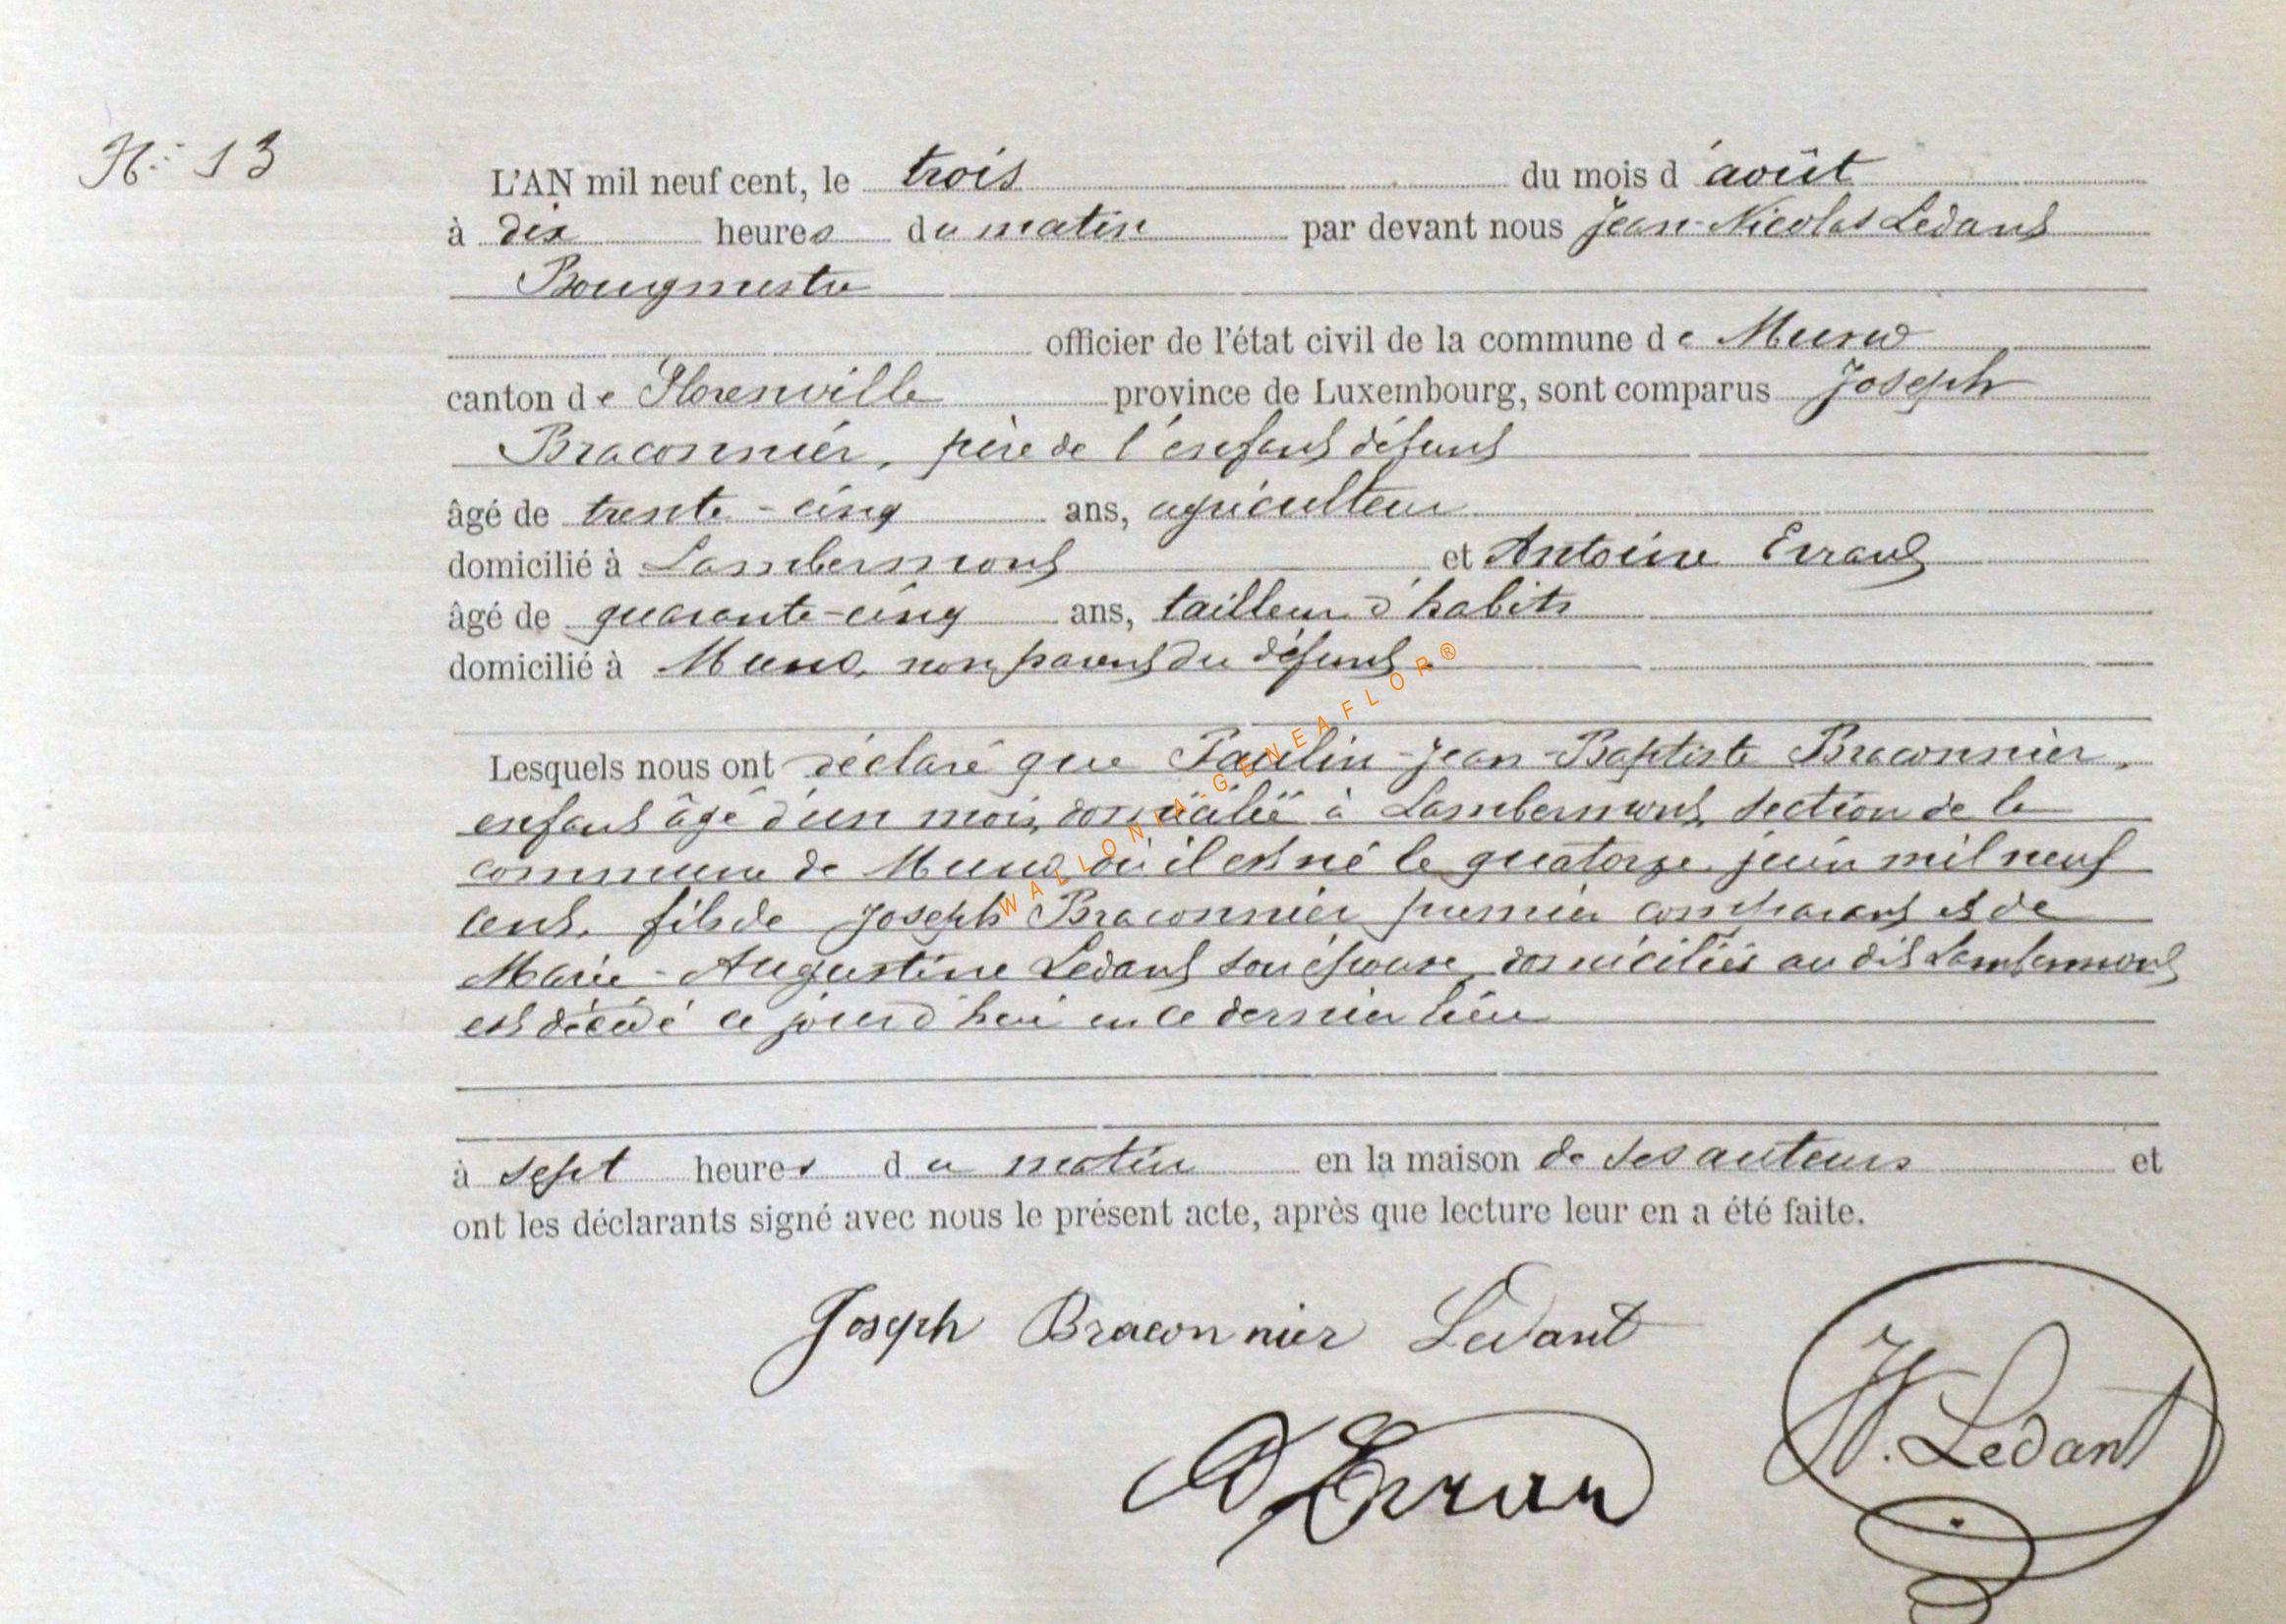 N° 13
L'AN mil neuf cent, le trois du mois d'août
à dix heures du matin par devant nous Jean-Nicolas Ledant
Bourgmestre
officier de l'état civil de la commune de Muno
canton de Florenville province de Luxembourg, sont comparus Joseph
Braconnier, père de l'enfant défunt
âgé de trente-cinq ans, agriculteur
domicilié à Lambermont et Antoine Errard
âgé de quarante-cinq ans, tailleur d'habits
domicilié à Muno, non parent du défunt.
Lesquels nous ont déclaré que Paulin-Jean-Baptiste Braconnier,
enfant âgé d'un mois, domicilié à Lambermont, section de la
commune de Muno où il est né le quatorze juin mil neuf
cent, fils de Joseph Braconnier premier comparant et de
Marie-Augustine Ledant son épouse, domiciliés au dit Lambermont
est décédé ce jourd'hui en ce dernier lieu
à sept heures du matin en la maison de ses auteurs et
ont les déclarants signé avec nous le présent acte, après que lecture leur en a été faite.
Joseph Braconnier Ledant
N. Ledant
A Errar
WALLONIA-GENEAFLOR®